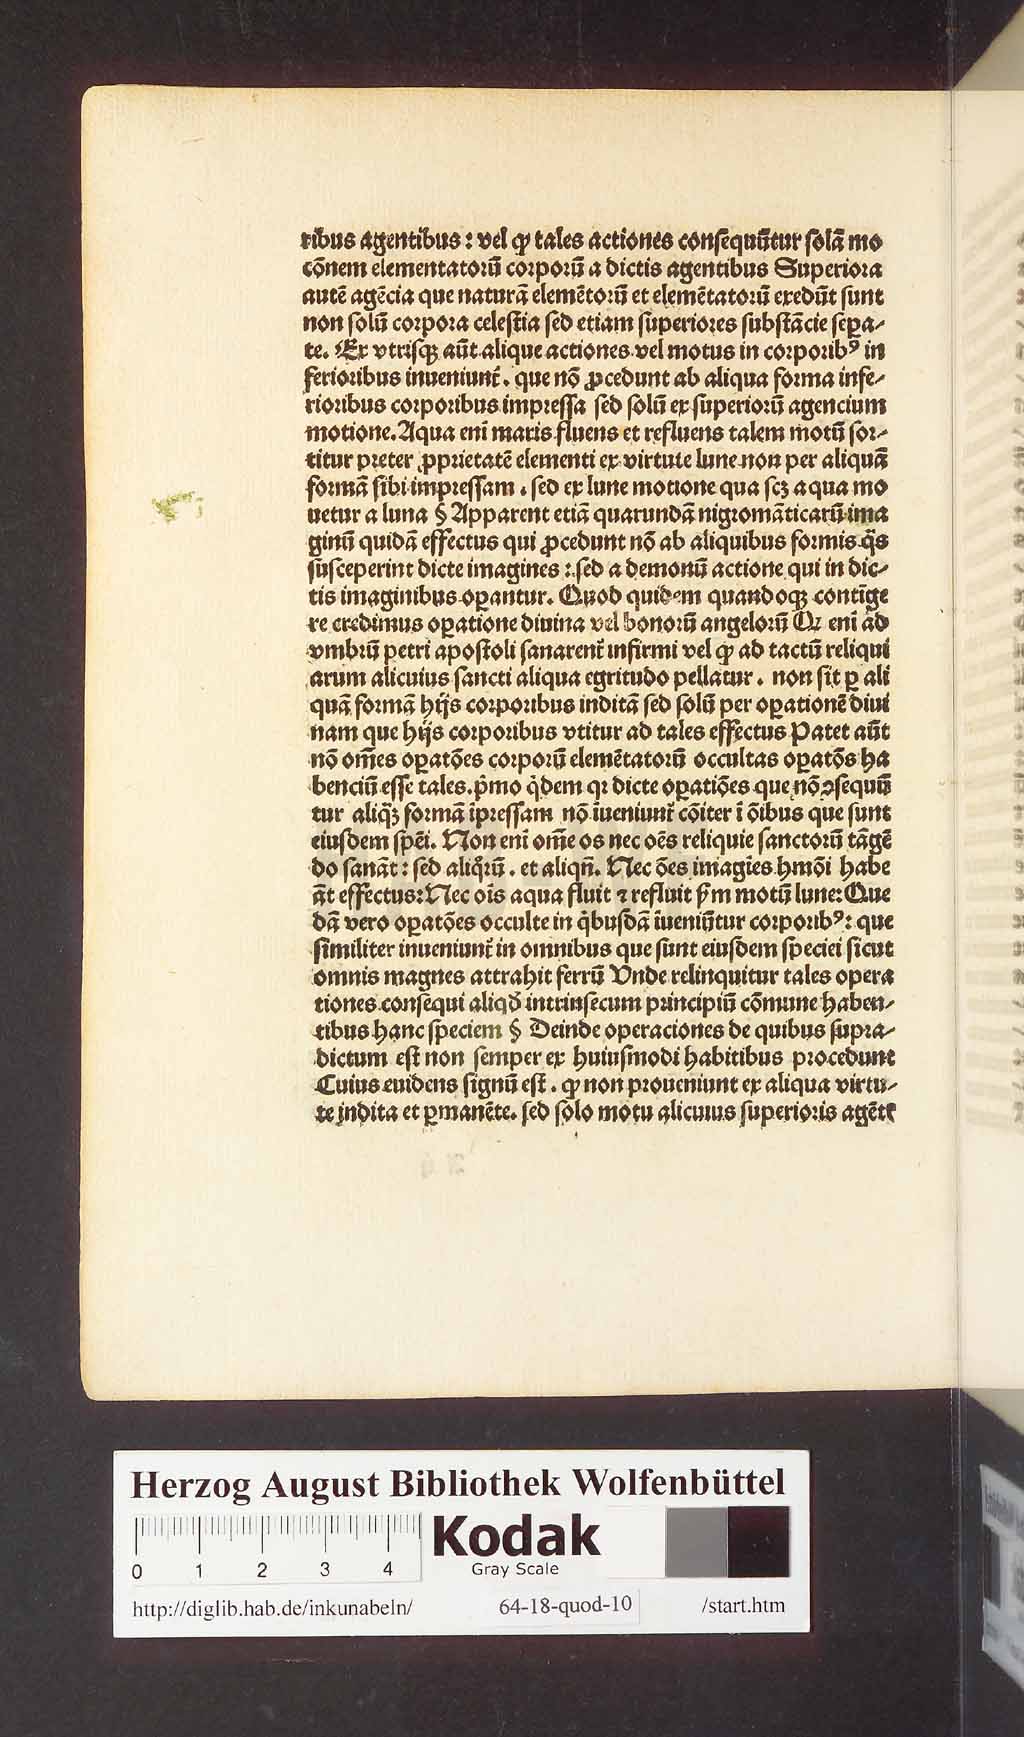 ribus agentibus : vel ꝙ tales actiones consequũtur solã mo
cõnem elementatorũ corporũ a dictis agentibus Superiora
autẽ agẽcia que naturã elemẽtorũ et elemẽtatorũ excedũt sunt
non solũ corpora celestia sed etiam superiores substãcie sepa-
te. Ex vtrisqꝫ aũt alique actiones vel motus in corporibꝰ in
ferioribus inueniunt᷑. que nõ ꝓcedunt ab aliqua forma infe-
rioribus corporibus impressa sed solũ ex superiorũ agencium
motione. Aqua eni̅ maris fluens et refluens talem motũ sor-
titur preter ꝓprietatẽ elementi ex virtute lune non per aliquã
formã sibi impressam . sed ex lune motione qua scꝫ aqua mo
uetur a luna § Apparent etiã quarundã nigromãticarũ ima
ginũ quidã effectus qui ꝓcedunt nõ ab aliquibus formis q̃s
susceperint dicte imagines : sed a demonũ actione qui in dic-
tis imaginibus oꝑantur. Quod quidem quandoqꝫ contĩge
re credimus oꝑatione diuina vel bonorũ angelorũ Qꝛ eni̅ ad
vmbrũ petri apostoli sanarent᷑ infirmi vel ꝙ ad tactũ reliqui
arum alicuius sancti aliqua egritudo pellatur . non sit ꝑ ali
quã formã hijs corporibus inditã sed solũ per oꝑationẽ diui
nam que hijs corporibus vtitur ad tales effectus Patet aũt
nõ om̅es oꝑatões corporũ elemẽtatorũ occultas oꝑatões ha
benciũ esse tales. p̃mo q̇dem qꝛ dicte oꝑatiões que nõ ꝯsequũ
tur aliq̃ꝫ formã ĩpressam nõ ĩueniunt᷑ cõiter ĩ õibus que sunt
eiusdem spẽi. Non eni̅ om̅e os nec oẽs reliquie sanctorũ tãgẽ
do sanãt : sed aliq̃rũ . et aliqñ. Nec ões imagĩes hmõi habe
ãt effectus: Nec oĩs aqua fluit ⁊ refluit ẜm motũ lune: Que
dã vero oꝑatões occulte in q̇busdã ĩueniũtur corporibꝰ: que
similiter inueniunt᷑ in omnibus que sunt eiusdem speciei sicut
omnis magnes attrahit ferrũ Vnde relinquitur tales opera
tiones consequi aliqđ intrinsecum principiũ cõmune haben-
tibus hanc speciem § Deinde operaciones de quibus supra-
dictum est non semper ex huiusmodi habitibus procedunt
Cuius euidens signũ est . ꝙ non proueniunt ex aliqua virtu-
te indita et ꝑmanẽte. sed solo motu alicuius superioris agẽt
Herzog August Bibliothek Wolfenbüttel
0 1 2 3 4
Kodak
Gray Scale
http://diglib.hab.de/inkunabeln/ 64-18-quod-10 /start.htm